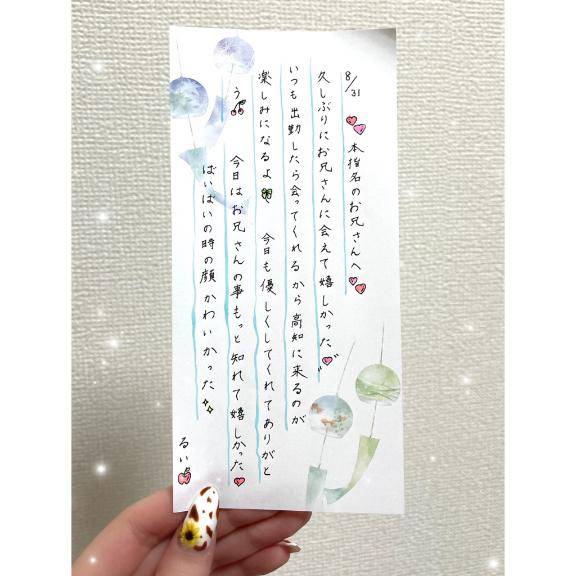 8/31
本指名のお兄さんへ
久しぶりにお兄さんに会えて嬉しかった
いつも出勤したら会ってくれるから高知に来るのが
楽しみになるよ 今日も優しくしてくれてありがと
う 今日はお兄さんの事もっと知れて嬉しかった
ばいばいの時の顔かわいかった
るい